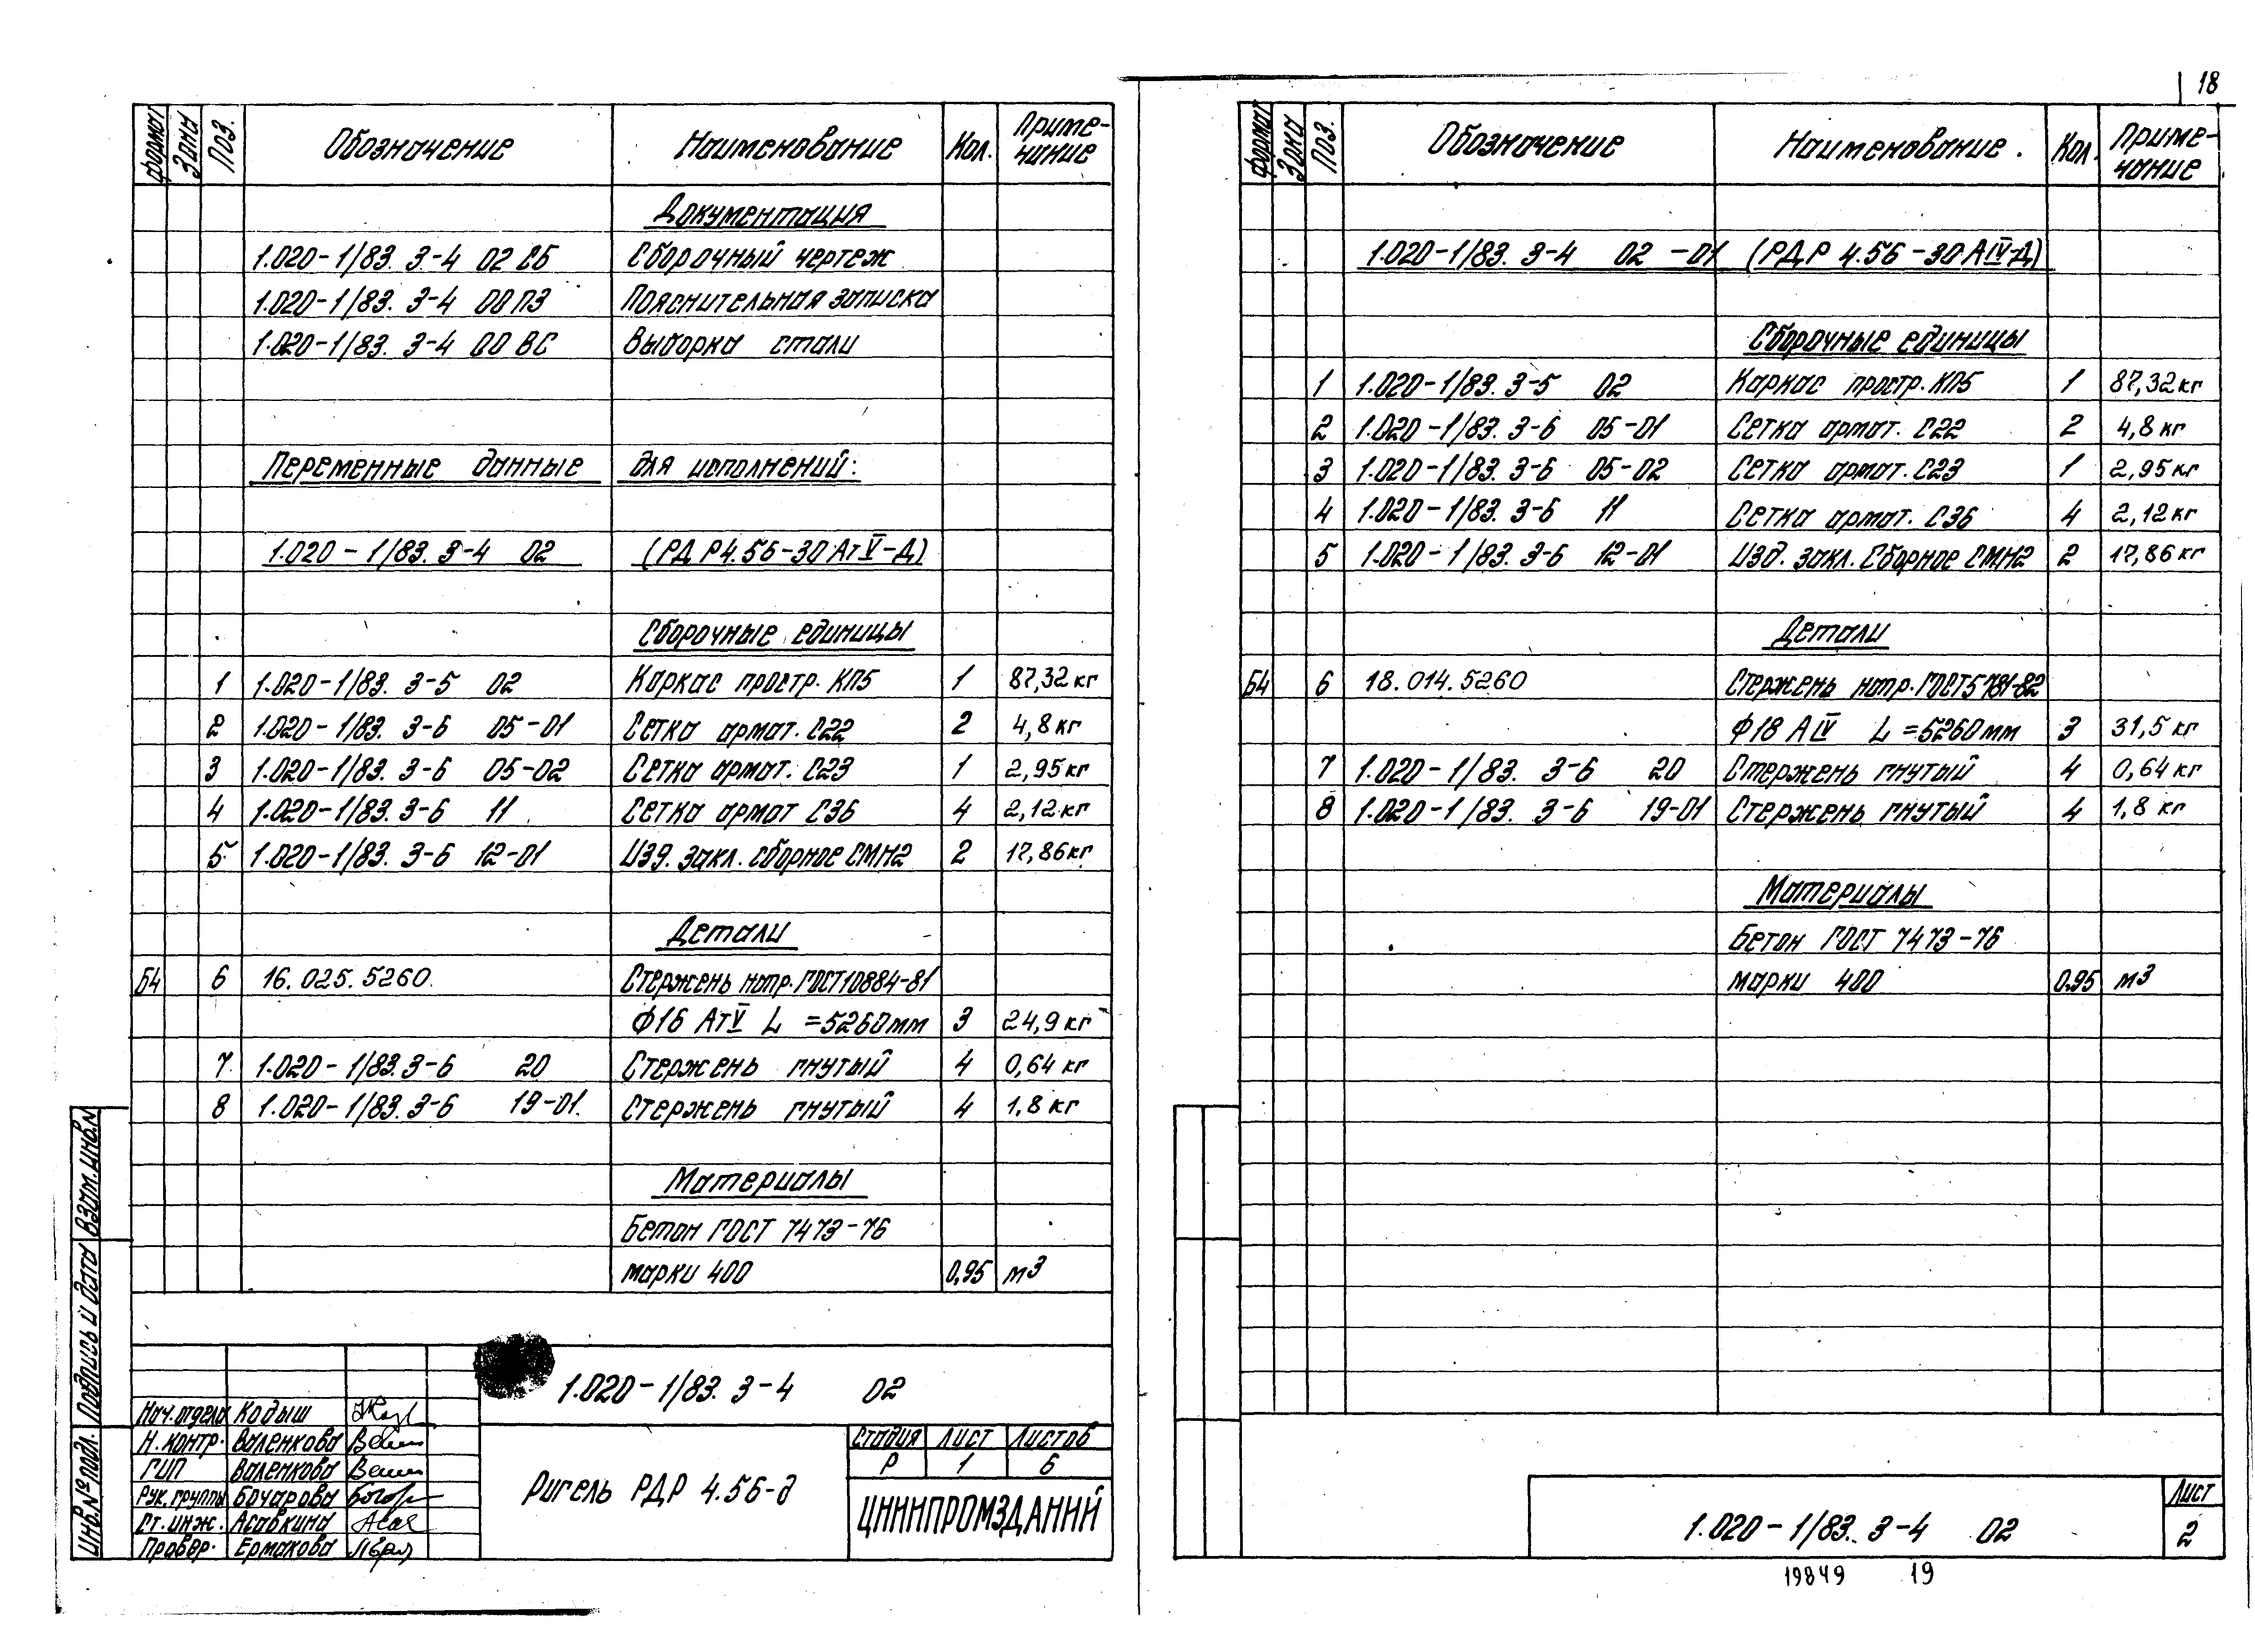 18
Формат Зона Поз. Обозначение Наименование Кол. Приме-чание
Документация
1.020-1/83. 3-4 02 СБ Сборочный чертеж
1.020-1/83. 3-4 00 ПЗ Пояснительная записка
1.020-1/83. 3-4 00 ВС Выборка стали
Переменные данные для исполнений:
1.020-1/83. 3-4 02 (РДР4.56-30АтV-Д)
Сборочные единицы
1 1.020-1/83. 3-5 02 Каркас простр. КП5 1 87,32 кг
2 1.020-1/83. 3-6 05-01 Сетка армат. С22 2 4,8 кг
3 1.020-1/83. 3-6 05-02 Сетка армат. С23 1 2,95 кг
4 1.020-1/83. 3-6 11 Сетка армат С36 4 2,12 кг
5 1.020-1/83. 3-6 12-01 Изд. закл. сборное СМН2 2 17,86 кг
Детали
Б4 6 16.025.5260. Стержень напр. ГОСТ10884-81
Ф16 АтV L =5260мм 3 24,9 кг
7. 1.020-1/83. 3-6 20 Стержень гнутый 4 0,64 кг
8 1.020-1/83. 3-6 19-01. Стержень гнутый 4 1,8 кг
Материалы
Бетон ГОСТ 7473-76
марки 400 0,95 м3
Взам. инв. N
Подпись и дата
Инв. № подл.
1.020-1/83. 3-4 02
Нач. отдела Кодыш
Н. контр. Валенкова
ГИП Валенкова
Рук. группы Бочарова
Ст. инж. Асавкина
Провер. Ермакова
Ригель РДР 4.56-д
Стадия Лист Листов
Р 1 6
ЦНИИПРОМЗДАНИЙ
Формат Зона Поз. Обозначение Наименование. Кол. Приме-чание
1.020-1/83. 3-4 02 -01 (РДР 4.56-30АIV-Д)
Сборочные единицы
1 1.020-1/83. 3-5 02 Каркас простр. КП5 1 87,32 кг
2 1.020-1/83. 3-6 05-01 Сетка армат. С22 2 4,8 кг
3 1.020-1/83. 3-6 05-02 Сетка армат. С23 1 2,95 кг
4 1.020-1/83. 3-6 11 Сетка армат. С36 4 2,12 кг
5 1.020-1/83. 3-6 12-01 Изд. закл. Сборное СМН2 2 17,86 кг
Детали
Б4 6 18.014.5260 Стержень напр. ГОСТ5781-82
Ф18 АIV L =5260мм 3 31,5 кг
7 1.020-1/83. 3-6 20 Стержень гнутый 4 0,64 кг
8 1.020-1/83. 3-6 19-01 Стержень гнутый 4 1,8 кг
Материалы
Бетон ГОСТ 7473-76
марки 400 0.95 м3
1.020-1/83. 3-4 02
Лист
2
19849 19